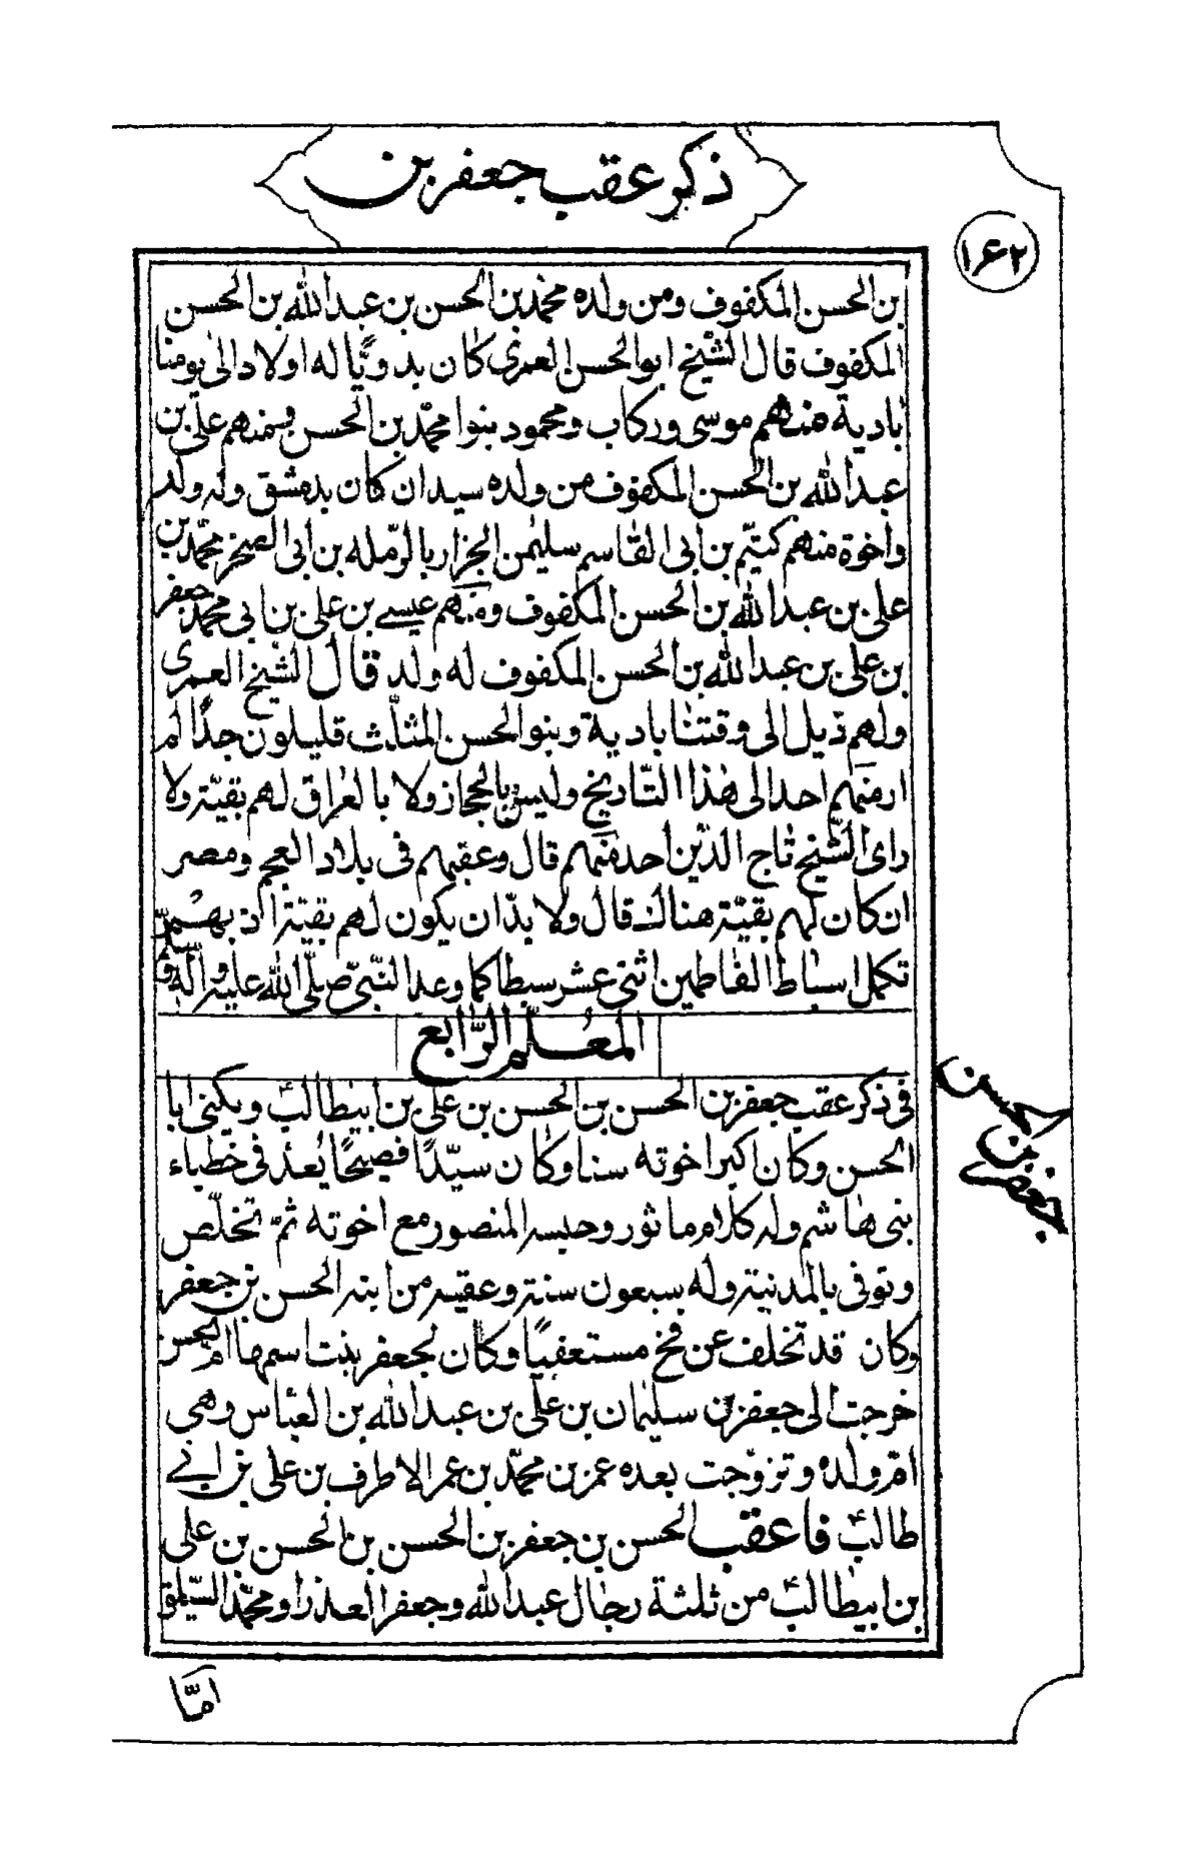 ذكر عقب جعفر بن
١۶٢
بن الحسن المكفوف ومن ولده محمد بن الحسن بن عبدالله بن الحسن
المكفوف قال الشيخ ابوالحسن العمرى كان بدويًّا له اولاد الى يومنا
بادية منهم موسى وركاب ومحمود بنوا محمّد بن الحسن ومنهم على بن
عبدالله بن الحسن المكفوف من ولده سيدان كان بدمشق وله ولد
واخوة منهم كتيّم بن ابى القاسم سليمن الجزار بالرّمله بن ابى الصخر محمّد بن
على بن عبدالله بن الحسن المكفوف ومنهم عيسى بن على بن ابى محمّد جعفر
بن على بن عبدالله بن الحسن المكفوف له ولد قال الشّيخ العمرى
ولهم ذيل الى وقتنا بادية وبنوالحسن المثلّث قليلون جدًّا لم
ار منهم احد الى هذا التّاريخ وليس بالحجاز ولا بالعراق لهم بقيّة ولا
راى الشّيخ تاج الدّين احد منهم قال وعقبهم فى بلاد العجم ومصر
ان كان لهم بقيّة هناك قال ولا بدّ ان يكون لهم بقيّة اذ بهم
تكمل اسباط الفاطمين اثنى عشر سبطا كما وعد النّبىّ صلّى الله عليه وآله وسلم
المعلم الرّابع
فى ذكر عقب جعفر بن الحسن بن الحسن بن على بن ابيطالب ويكنى ابا
الحسن وكان اكبر اخوته سنا وكان سيّدًا فصيحًا يُعدّ فى خطباء
بنى هاشم وله كلام ماثور وحبسه المنصور مع اخوته ثمّ تخلّص
وتوفى بالمدنية وله سبعون سنة وعقبه من ابنه الحسن بن جعفر
وكان قد تخلف عن فخ مستعفيًا وكان لجعفر بنت اسمها ام الحسن
خرجت الى جعفر بن سليمان بن على بن عبدالله بن العبّاس وهى
امّ ولده وتزوّجت بعده عمر بن محمّد بن عمر الاطرف بن على بن ابى
طالب فاعقب الحسن بن جعفر بن الحسن بن الحسن بن على
بن ابيطالب من ثلثة رجال عبدالله وجعفر العذرا ومحمّد السّيلق
الحسن
جعفر بن
امّا